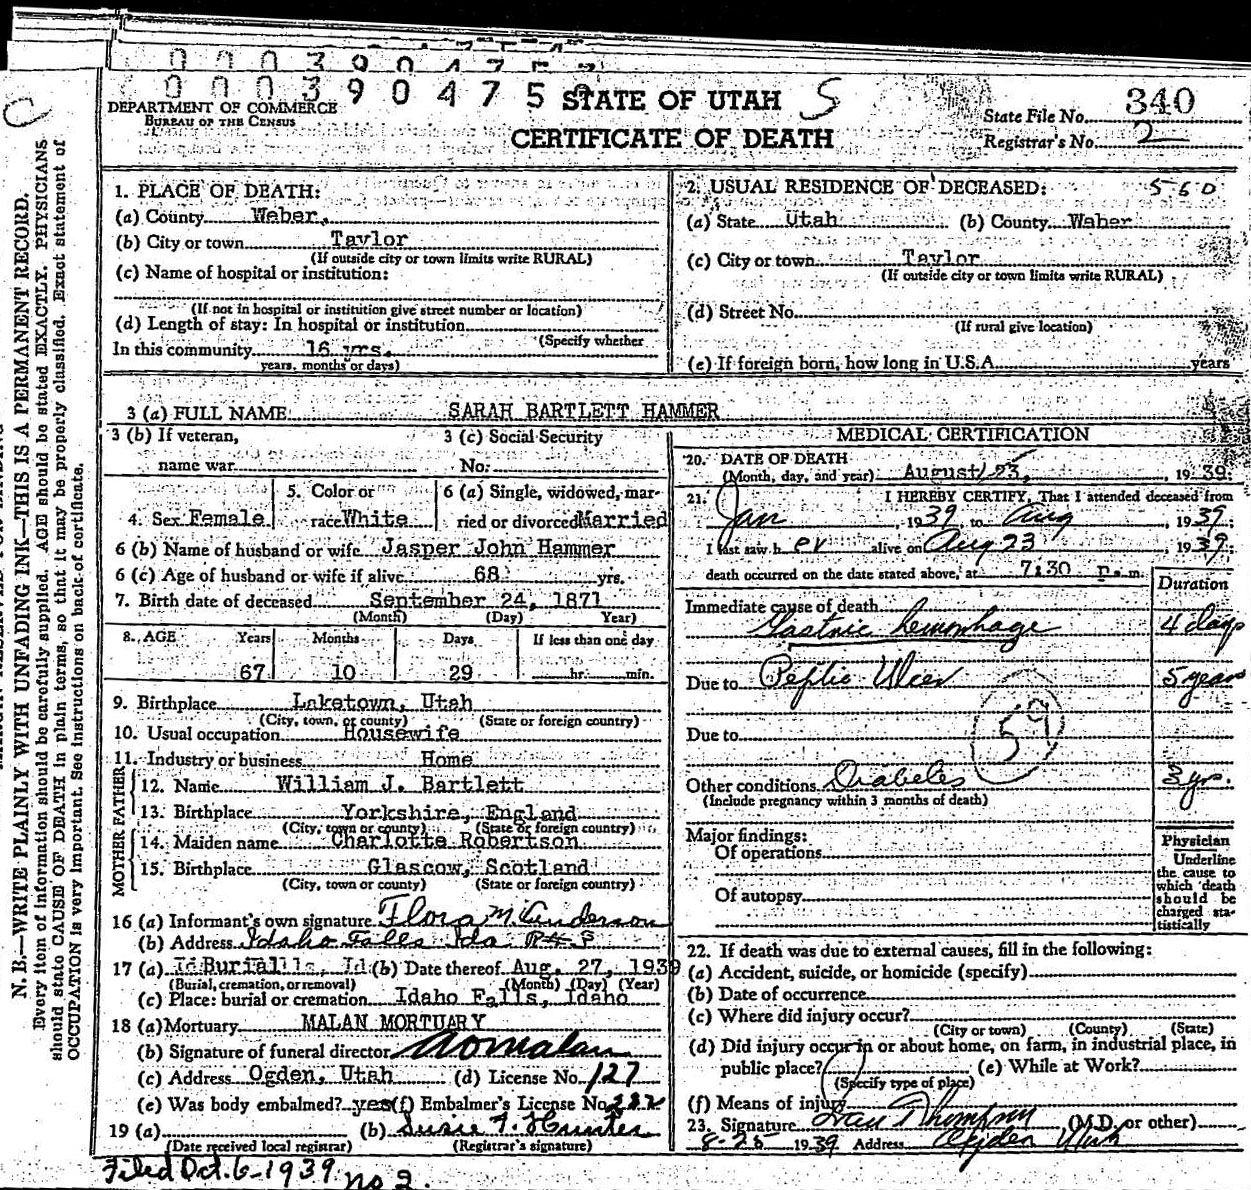 0 0 0 3 9 0 4 7 5
0 0 0 3 9 0 4 7 5
DEPARTMENT OF COMMERCE
BUREAU OF THE CENSUS
STATE OF UTAH S
CERTIFICATE OF DEATH
State File No. 340
Registrar's No. 2
C
N. B.—WRITE PLAINLY WITH UNFADING INK—THIS IS A PERMANENT RECORD.
Every item of information should be carefully supplied. AGE should be stated EXACTLY. PHYSICIANS
should state CAUSE OF DEATH in plain terms, so that it may be properly classified. Exact statement of
OCCUPATION is very important. See instructions on back of certificate.
1. PLACE OF DEATH:
(a) County Weber,
(b) City or town Taylor
(If outside city or town limits write RURAL)
(c) Name of hospital or institution:
(If not in hospital or institution give street number or location)
(d) Length of stay: In hospital or institution
(Specify whether
In this community 16 yrs.
years, months or days)
2. USUAL RESIDENCE OF DECEASED: 560
(a) State Utah (b) County Weber
(c) City or town Taylor
(If outside city or town limits write RURAL)
(d) Street No.
(If rural give location)
(e) If foreign born, how long in U.S.A. years
3 (a) FULL NAME SARAH BARTLETT HAMMER
3 (b) If veteran, 3 (c) Social Security
name war No.
4. Sex Female 5. Color or race White 6 (a) Single, widowed, married or divorced Married
6 (b) Name of husband or wife Jasper John Hammer
6 (c) Age of husband or wife if alive 68 yrs.
7. Birth date of deceased September 24, 1871
(Month) (Day) Year)
8. AGE Years Months Days If less than one day
67 10 29 hr. min.
9. Birthplace Laketown, Utah
(City, town, or county) (State or foreign country)
10. Usual occupation Housewife
11. Industry or business Home
FATHER
12. Name William J. Bartlett
13. Birthplace Yorkshire, England
(City, town or county) (State or foreign country)
MOTHER
14. Maiden name Charlotte Robertson
15. Birthplace Glascow, Scotland
(City, town or county) (State or foreign country)
16 (a) Informant's own signature Flora M. Anderson
(b) Address Idaho Falls Ida
17 (a) Burial (b) Date thereof Aug. 27, 1939
(Burial, cremation, or removal) (Month) (Day) (Year)
(c) Place: burial or cremation Idaho Falls, Idaho
18 (a) Mortuary MALAN MORTUARY
(b) Signature of funeral director
(c) Address Ogden, Utah (d) License No. 127
(e) Was body embalmed? yes (f) Embalmer's License No. 222
19 (a) (b) Susie T. Hunter
(Date received local registrar) (Registrar's signature)
Filed Oct. 6-1939 no 2.
MEDICAL CERTIFICATION
20. DATE OF DEATH
(Month, day, and year) August 23, 1939.
21. I HEREBY CERTIFY, That I attended deceased from
Jan, 1939 to Aug, 1939
I last saw h er alive on Aug 23, 1939;
death occurred on the date stated above, at 7:30 p.m.
Duration
Immediate cause of death
Gastric hemorrhage 4 days
Due to Peptic Ulcer 5 years
Due to
59
Other conditions Diabetes 3 yrs.
(Include pregnancy within 3 months of death)
Major findings:
Of operations
Of autopsy
Physician
Underline
the cause to
which death
should be
charged sta-
tistically
22. If death was due to external causes, fill in the following:
(a) Accident, suicide, or homicide (specify)
(b) Date of occurrence
(c) Where did injury occur?
(City or town) (County) (State)
(d) Did injury occur in or about home, on farm, in industrial place, in
public place? (e) While at Work?
(Specify type of place)
(f) Means of injury
23. Signature Thompson (M.D. or other)
8-25 1939 Address Ogden Utah